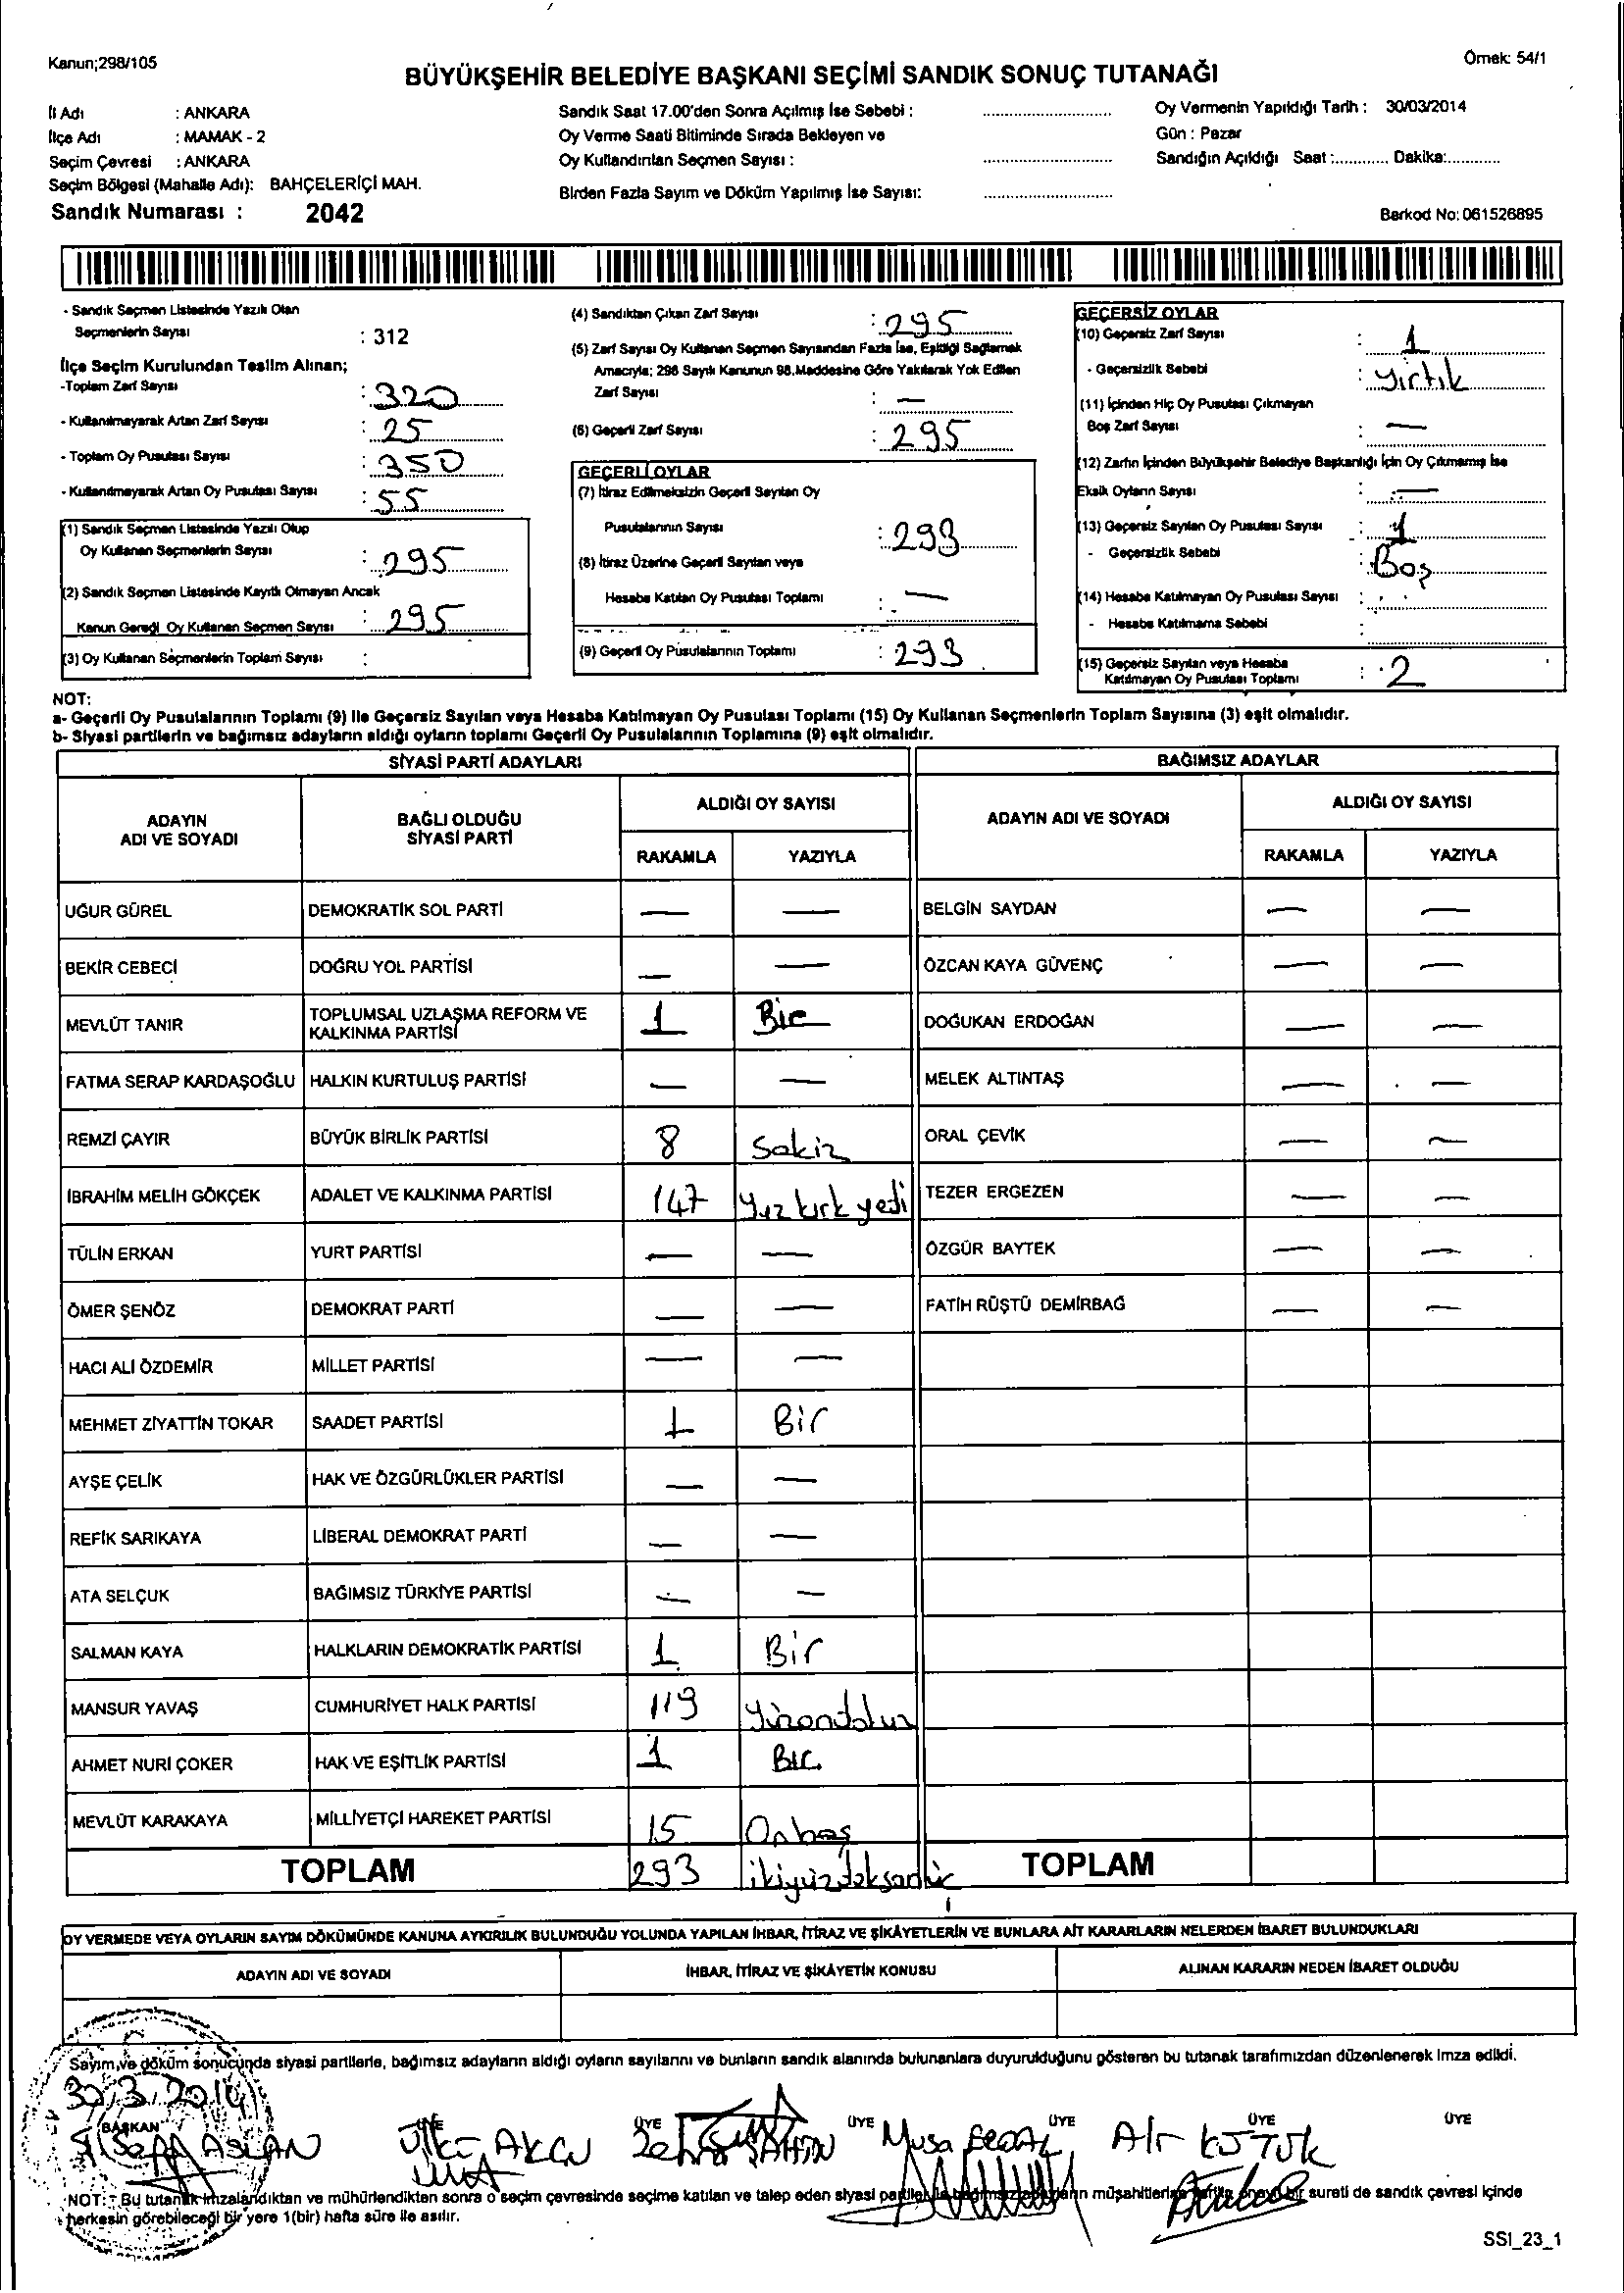 Kanun;298/105
Örnek: 54/1
BÜYÜKŞEHİR BELEDİYE BAŞKANI SEÇİMİ SANDIK SONUÇ TUTANAĞI
İl Adı : ANKARA
İlçe Adı : MAMAK - 2
Seçim Çevresi : ANKARA
Seçim Bölgesi (Mahalle Adı): BAHÇELERİÇİ MAH.
Sandık Numarası : 2042
Sandık Saat 17.00'den Sonra Açılmış İse Sebebi :
Oy Verme Saati Bitiminde Sırada Bekleyen ve
Oy Kullandırılan Seçmen Sayısı :
Birden Fazla Sayım ve Döküm Yapılmış İse Sayısı:
Oy Vermenin Yapıldığı Tarih : 30/03/2014
Gün : Pazar
Sandığın Açıldığı Saat :............ Dakika:............
Barkod No: 061526895
- Sandık Seçmen Listesinde Yazılı Olan
Seçmenlerin Sayısı : 312
İlçe Seçim Kurulundan Teslim Alınan;
-Toplam Zarf Sayısı : 320
- Kullanılmayarak Artan Zarf Sayısı : 25
- Toplam Oy Pusulası Sayısı : 350
- Kullanılmayarak Artan Oy Pusulası Sayısı : 55
(1) Sandık Seçmen Listesinde Yazılı Olup
Oy Kullanan Seçmenlerin Sayısı : 295
(2) Sandık Seçmen Listesinde Kayıtlı Olmayan Ancak
Kanun Gereği Oy Kullanan Seçmen Sayısı : 295
(3) Oy Kullanan Seçmenlerin Toplam Sayısı :
(4) Sandıktan Çıkan Zarf Sayısı : 295
(5) Zarf Sayısı Oy Kullanan Seçmen Sayısından Fazla İse, Eşitliği Sağlamak
Amacıyla; 298 Sayılı Kanunun 98.Maddesine Göre Yakılarak Yok Edilen
Zarf Sayısı : —
(6) Geçerli Zarf Sayısı : 295
GEÇERLİ OYLAR
(7) İtiraz Edilmeksizin Geçerli Sayılan Oy
Pusulalarının Sayısı : 293
(8) İtiraz Üzerine Geçerli Sayılan veya
Hesaba Katılan Oy Pusulası Toplamı : —
(9) Geçerli Oy Pusulalarının Toplamı : 293
GEÇERSİZ OYLAR
(10) Geçersiz Zarf Sayısı : 1
- Geçersizlik Sebebi : yırtık
(11) İçinden Hiç Oy Pusulası Çıkmayan
Boş Zarf Sayısı : —
(12) Zarfın İçinden Büyükşehir Belediye Başkanlığı İçin Oy Çıkmamış İse
Eksik Oyların Sayısı : —
(13) Geçersiz Sayılan Oy Pusulası Sayısı : 1
- Geçersizlik Sebebi : Boş
(14) Hesaba Katılmayan Oy Pusulası Sayısı :
- Hesaba Katılmama Sebebi :
(15) Geçersiz Sayılan veya Hesaba
Katılmayan Oy Pusulası Toplamı : 2
NOT:
a- Geçerli Oy Pusulalarının Toplamı (9) ile Geçersiz Sayılan veya Hesaba Katılmayan Oy Pusulası Toplamı (15) Oy Kullanan Seçmenlerin Toplam Sayısına (3) eşit olmalıdır.
b- Siyasi partilerin ve bağımsız adayların aldığı oyların toplamı Geçerli Oy Pusulalarının Toplamına (9) eşit olmalıdır.
SİYASİ PARTİ ADAYLARI
BAĞIMSIZ ADAYLAR
ADAYIN ADI VE SOYADI
BAĞLI OLDUĞU SİYASİ PARTİ
ALDIĞI OY SAYISI
RAKAMLA YAZIYLA
ADAYIN ADI VE SOYADI
ALDIĞI OY SAYISI
RAKAMLA YAZIYLA
UĞUR GÜREL DEMOKRATİK SOL PARTİ — — BELGİN SAYDAN — —
BEKİR CEBECİ DOĞRU YOL PARTİSİ — — ÖZCAN KAYA GÜVENÇ — —
MEVLÜT TANIR TOPLUMSAL UZLAŞMA REFORM VE KALKINMA PARTİSİ 1 Bir DOĞUKAN ERDOĞAN — —
FATMA SERAP KARDAŞOĞLU HALKIN KURTULUŞ PARTİSİ — — MELEK ALTINTAŞ — —
REMZİ ÇAYIR BÜYÜK BİRLİK PARTİSİ 8 Sekiz ORAL ÇEVİK — —
İBRAHİM MELİH GÖKÇEK ADALET VE KALKINMA PARTİSİ 147 Yüz kırk yedi TEZER ERGEZEN — —
TÜLİN ERKAN YURT PARTİSİ — — ÖZGÜR BAYTEK — —
ÖMER ŞENÖZ DEMOKRAT PARTİ — — FATİH RÜŞTÜ DEMİRBAĞ — —
HACI ALİ ÖZDEMİR MİLLET PARTİSİ — —
MEHMET ZİYATTİN TOKAR SAADET PARTİSİ 1 Bir
AYŞE ÇELİK HAK VE ÖZGÜRLÜKLER PARTİSİ — —
REFİK SARIKAYA LİBERAL DEMOKRAT PARTİ — —
ATA SELÇUK BAĞIMSIZ TÜRKİYE PARTİSİ — —
SALMAN KAYA HALKLARIN DEMOKRATİK PARTİSİ 1 Bir
MANSUR YAVAŞ CUMHURİYET HALK PARTİSİ 119
AHMET NURİ ÇOKER HAK VE EŞİTLİK PARTİSİ 1 Bir
MEVLÜT KARAKAYA MİLLİYETÇİ HAREKET PARTİSİ 15 Onbeş
TOPLAM 293 ikiyüzdoksanüç TOPLAM
OY VERMEDE VEYA OYLARIN SAYIM DÖKÜMÜNDE KANUNA AYKIRILIK BULUNDUĞU YOLUNDA YAPILAN İHBAR, İTİRAZ VE ŞİKÂYETLERİN VE BUNLARA AİT KARARLARIN NELERDEN İBARET BULUNDUKLARI
ADAYIN ADI VE SOYADI İHBAR, İTİRAZ VE ŞİKÂYETİN KONUSU ALINAN KARARIN NEDEN İBARET OLDUĞU
Sayım ve döküm sonucunda siyasi partilerle, bağımsız adayların aldığı oyların sayılarını ve bunların sandık alanında bulunanlara duyurulduğunu gösteren bu tutanak tarafımızdan düzenlenerek imza edildi.
30.3.2014
BAŞKAN ÜYE ÜYE ÜYE ÜYE ÜYE
ASLAN AKGÜN ŞAHİN Musa Ali
NOT: - Bu tutanak imzalandıktan ve mühürlendikten sonra o seçim çevresinde seçime katılan ve talep eden siyasi partiler ile bağımsız adayların müşahitlerine onaylı bir sureti de sandık çevresi içinde
herkesin görebileceği bir yere 1(bir) hafta süre ile asılır.
SSI_23_1